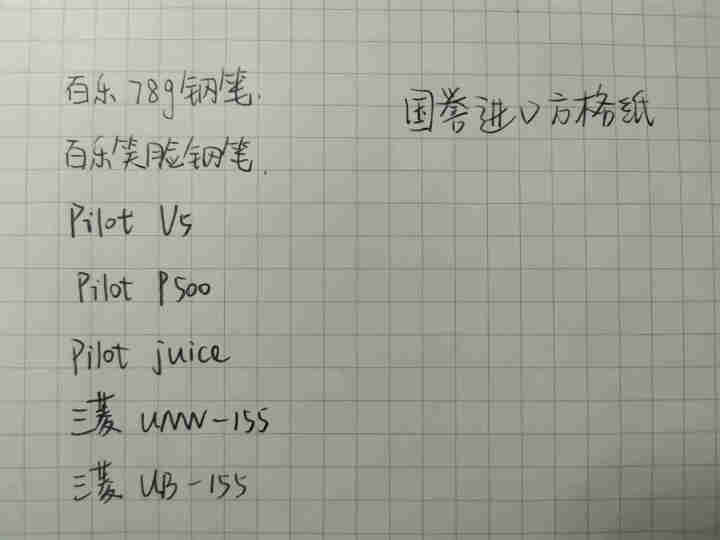 百乐 78g 钢笔.
国誉进口方格纸
百乐笑脸钢笔.
Pilot V5
Pilot P500
Pilot juice
三菱 UMN-155
三菱 UB-155